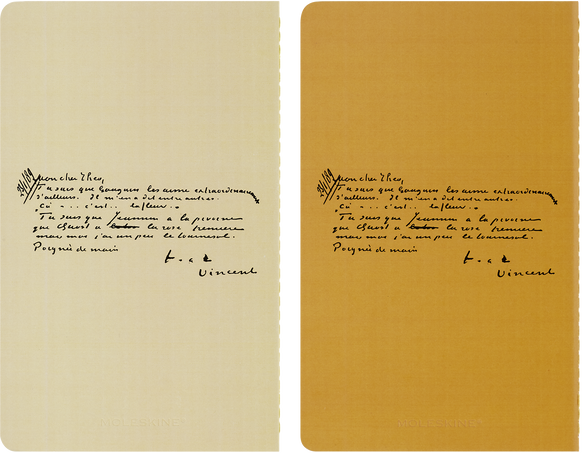 24/1/89 mon cher Theo,
Tu sais que Gauguin les aime extraordinairement
d'ailleurs. Il m'en a dit entre autres:
Cà - ... c'est.. la fleur..
"Tu sais que Jeannin a la pivoine
que Quost a la rose tremiere
mais moi j'ai un peu le tournesol.
Poignée de main
t. a t
Vincent
24/1/89 mon cher Theo,
Tu sais que Gauguin les aime extraordinairement
d'ailleurs. Il m'en a dit entre autres:
Cà - ... c'est.. la fleur..
"Tu sais que Jeannin a la pivoine
que Quost a la rose tremiere
mais moi j'ai un peu le tournesol.
Poignée de main
t. a t
Vincent